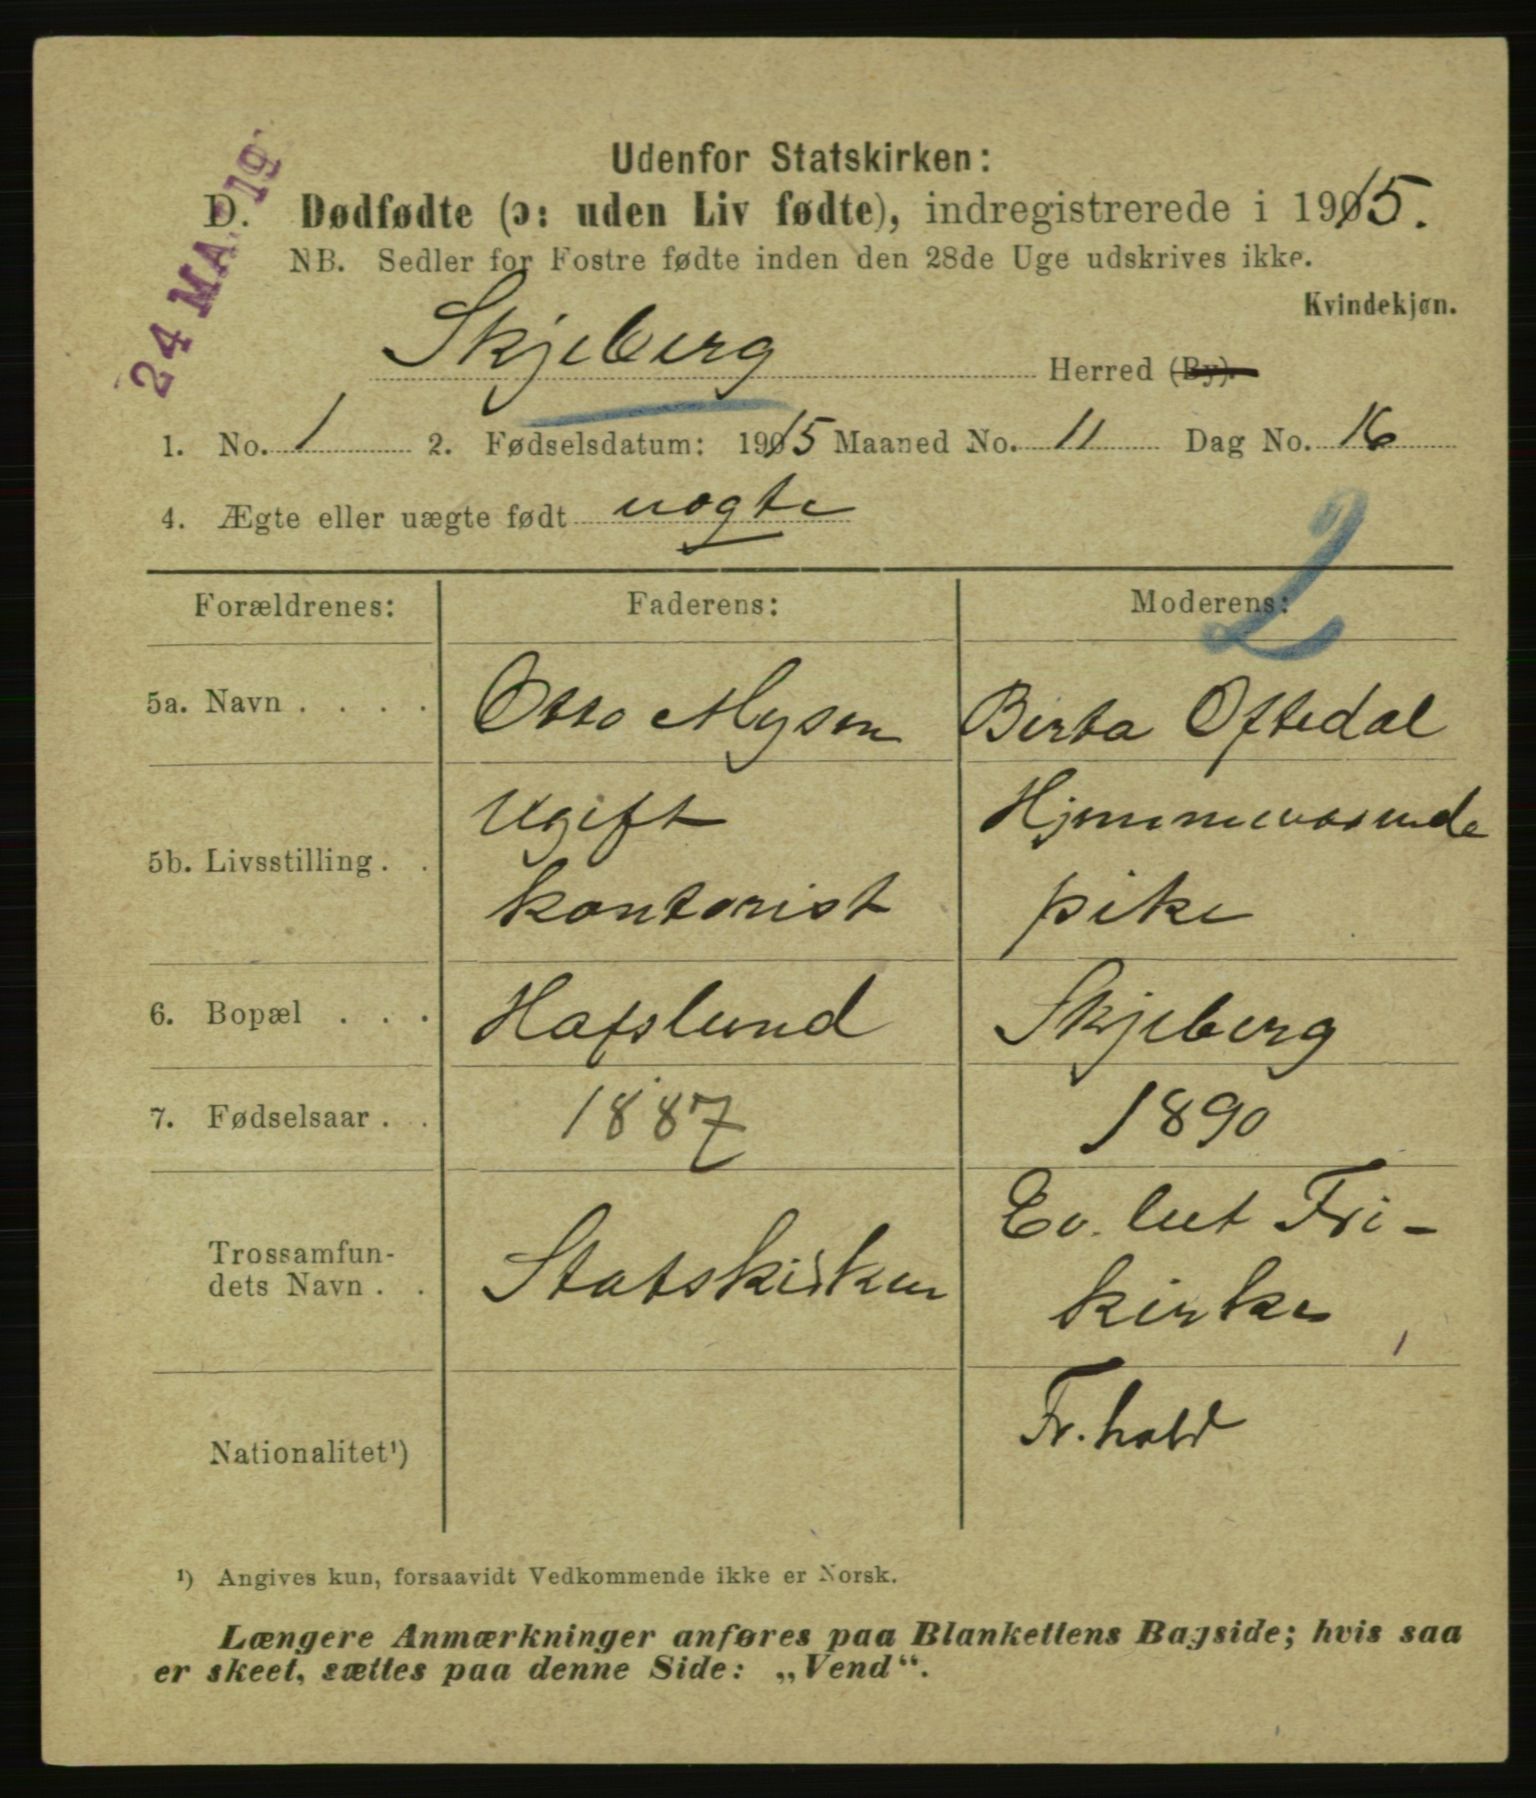 24 MA 19
Udenfor Statskirken:
D. Dødfødte (ɔ: uden Liv fødte), indregistrerede i 1915.
NB. Sedler for Fostre fødte inden den 28de Uge udskrives ikke.
Kvindekjøn.
Skjeberg Herred (By).
1. No. 1 2. Fødselsdatum: 1915 Maaned No. 11 Dag No. 16
4. Ægte eller uægte født uægte
2
Forældrenes: Faderens: Moderens:
5a. Navn . . . . Otto Mysen Birta Oftedal
Ugift Hjemmeværende
5b. Livsstilling . .
kontorist pike
6. Bopæl . . . Hafslund Skjeberg
7. Fødselsaar . . 1887 1890
Ev. lut Fri-
Trossamfun-
dets Navn . . Statskirken
kirke
Nationalitet¹)
¹) Angives kun, forsaavidt Vedkommende ikke er Norsk.
Længere Anmærkninger anføres paa Blankettens Bagside; hvis saa
er skeet, sættes paa denne Side: „Vend“.